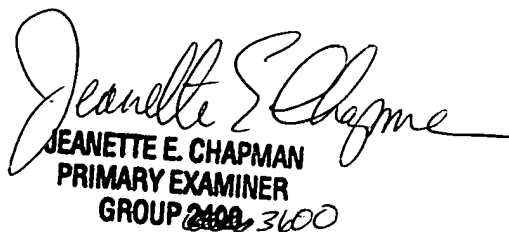 Jeanette E Chapman
JEANETTE E. CHAPMAN
PRIMARY EXAMINER
GROUP 2400 3600